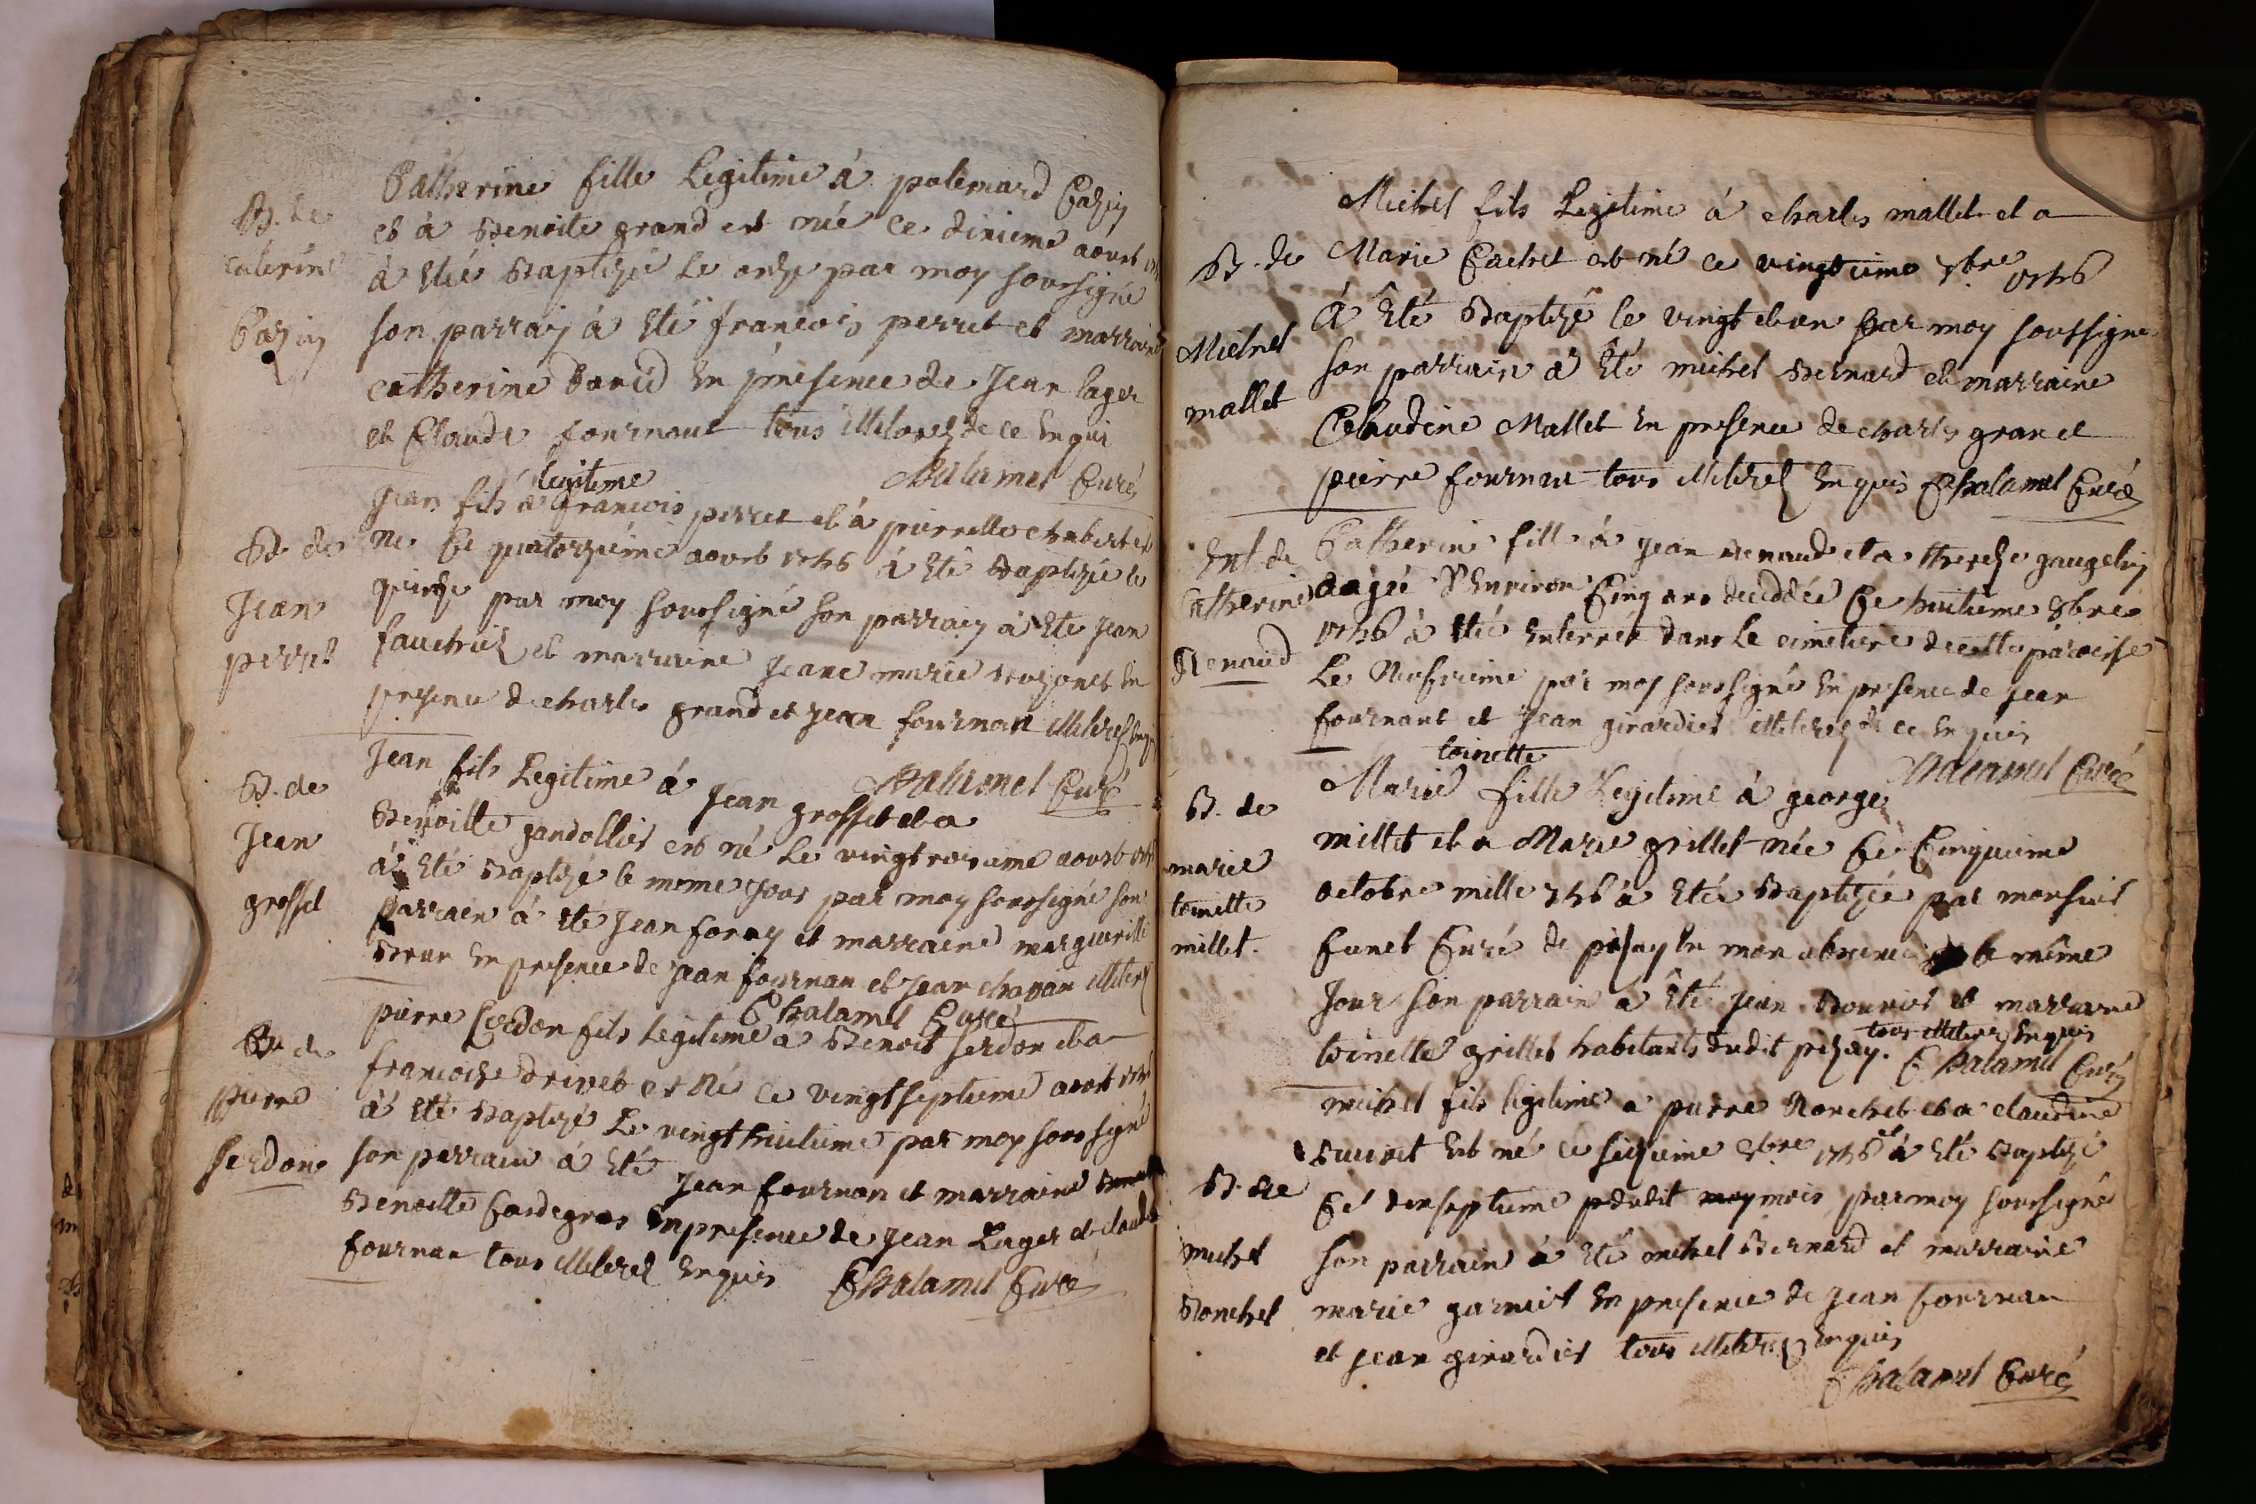 B. de
caterine
Bazin
Catherine fille Legitime à polemard Bazin
et à Benoite grand est née ce dixieme aoust
à Eté Baptizé Le onze par moy soussigné
son parrain à Eté francois perret et marraine
catherine David En présence de Jean lager
et Claude fournant tous illiterez de ce Enquis
Chalamel Curé
B. de
Jean
perret
legitime
Jean fils à francois perret et à pierrette chabert est
né Ce quatorzieme aoust 1746 à Eté Baptizé le
quinze par moy soussigné son parrain à Eté Jean
et marraine Jeane marie En
presence de charle grand et Jean fournan illiterez Enquis
Chalamel Curé
B. de
Jean
grosset
Jean fils Legitime à Jean grosset et a
Benoitte gandollier est né Le vingt troisieme aoust
à Eté Baptizé le meme Jour par moy soussigné son
parrain à Eté Jean foray et marraine margueritte
Brun En presence de Jean fournan et Jean chavan illiterez
Chalamel Curé
B. de
pierre
serdon
pierre Cerdon fils Legitime à Benoit serdon et a
francoise drivet est Né ce vingt septieme aoust
à Eté Baptizé Le vingt huitieme par moy soussigné
son parrain à Eté Jean fournan et marraine
Benoitte En presence de Jean Lager et claude
fournan tous illiterez Enquis Chalamel Curé
B. de
Michel
mallet
Michel fils Legitime à charles mallet et a
Marie Cachet est né ce vingtieme 7bre 1746
à Eté Baptizé le vingt et un par moy soussigné
son parrain à Eté michel Bernard et marraine
Claudine Mallet En presence de charles gran et
pierre fournan tous illiterez Enquis Chalamel Curé
Ent. de
Catherine
Renaud
Catherine fille à Jean Renaud et a
aagée D'Environ Cinq ans decedée Ce huitieme 8bre
1746 à Eté Enterrée dans Le cimetiere de cette paroisse
Le Neufvieme par moy soussigné En presence de Jean
fournant et Jean girardier illiterez de ce Enquis
Chalamel Curé
B. de
marie
toinette
millet.
toinette
Marie fille Legitime à george
millet et a Marie grillet née Ce Cinquieme
octobre mille 746 à Eté Baptizée par monsieur
Funet Curé de pizay En mon absence le même
Jour son parrain à Eté Jean Bouvier et marraine
toinette grillet habitants dudit pizay. tous illiterez Enquis
Chalamel Curé
B. de
michel
Ronchet
michel fils legitime à pierre Ronchet et a claudine
est né ce seizieme 8bre 1746 et à Eté Baptizé
Ce dixseptieme dudit mois par moy soussigné
son parrain à Eté michel Bernard et marraine
marie garnier En presence de Jean fournan
et Jean girardier tous illiterez Enquis
Chalamel Curé